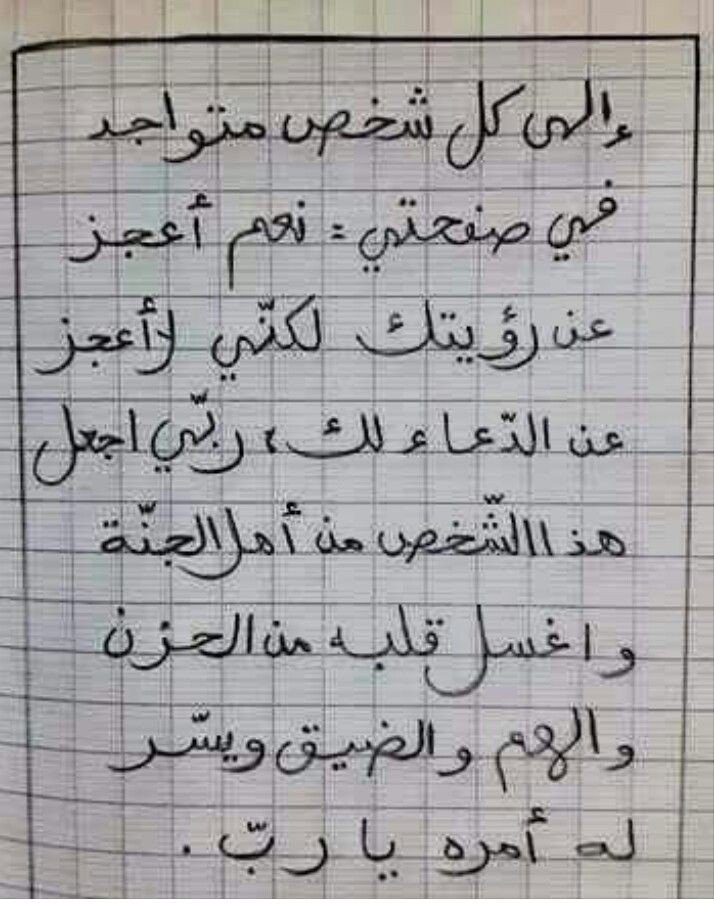 إلى كل شخص متواجد
في صفحتي : نعم أعجز
عن رؤيتك لكنّي لا أعجز
عن الدّعاء لك ، ربّي اجعل
هذا الشّخص من أهل الجنّة
واغسل قلبه من الحزن
والهم والضيق ويسّر
له أمره يا ربّ .